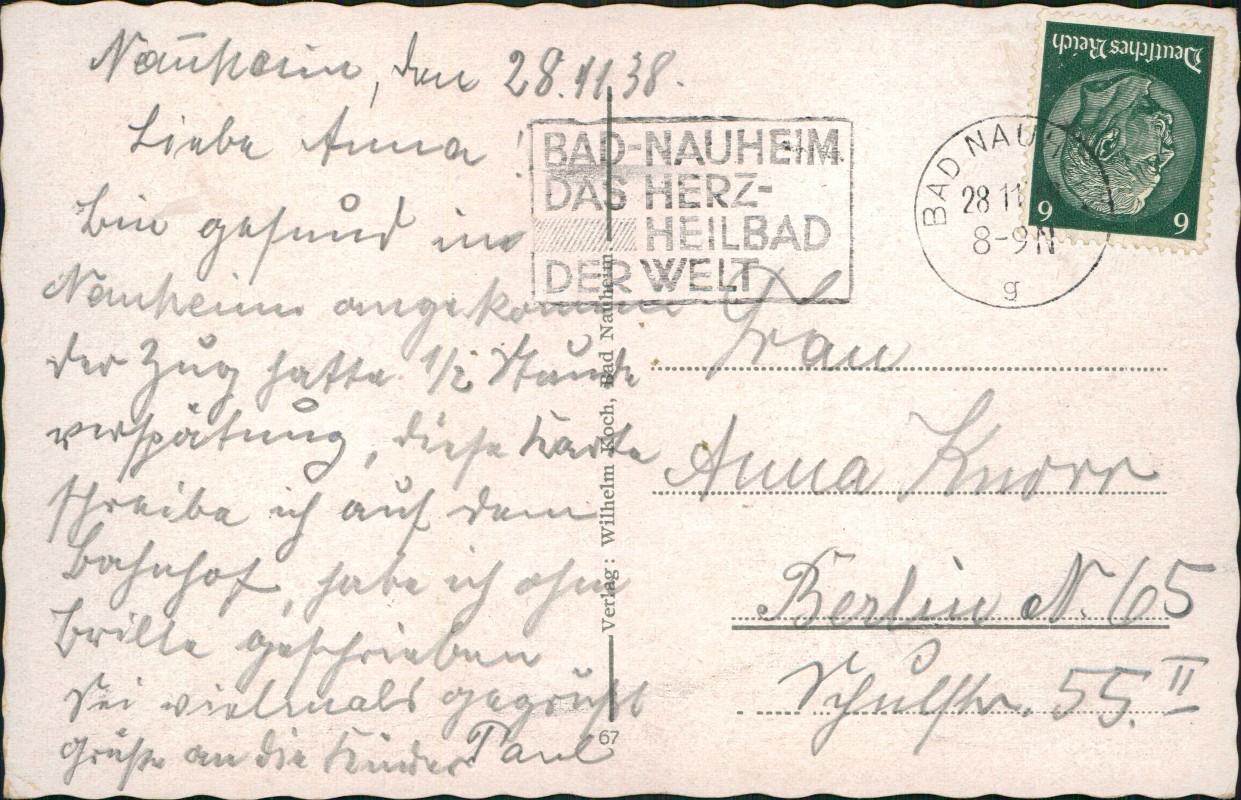 Nauheim, den 28.11.38.
Liebe Anna!
Bin gesund in
Nauheim angekommen
der Zug hatte 1/2 Stunde
verspätung, diese Karte
schreibe ich auf dem
Bahnhof, habe ich ohne
Brille geschrieben
Sei vielmals gegrüßt
Grüße an die Kinder Paul
BAD-NAUHEIM
DAS HERZ-
HEILBAD
DER WELT
BAD NAUH
28 11
8-9 N
g
Deutsches Reich
6 6
Verlag: Wilhelm Koch, Bad Nauheim.
67
Frau
Anna Knorr
Berlin N. 65
Schulstr. 55. II